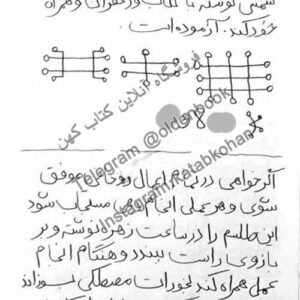 نوشته با گلاب و زعفران و همراه
خود کند. آزموده است.
فروشگاه آنلاین کتاب کهن
Telegram @oldenbook
Instagram:ketabkohan
اگر خواهی در تمام اعمال روحانی موفق
شوی و هر عملی انجام دهی مستجاب شود
این طلسم را در ساعت زهره نوشته و بر
بازوی راست ببندد و هنگام انجام
عمل همراه کند بخورات مصطکی بسوزاند